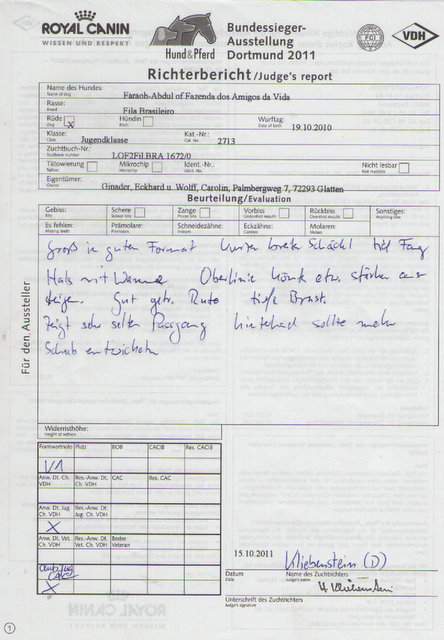 ROYAL CANIN
WISSEN UND RESPEKT
Hund & Pferd
Bundessieger-
Ausstellung
Dortmund 2011
FCI
VDH
Richterbericht /Judge's report
Name des Hundes:
Name of dog
Faraoh-Abdul of Fazenda dos Amigos da Vida
Rasse:
Breed
Fila Brasileiro
Rüde x Hündin Wurftag:
Dog Bitch Date of birth
19.10.2010
Klasse: Kat.-Nr.:
Class Cat.-No.
Jugendklasse 2713
Zuchtbuch-Nr.:
Studbook number
LOF2Fil BRA 1672/0
Tätowierung Mikrochip Ident.-Nr. Nicht lesbar
Tattoo Microchip Ident.-No. Not readable
Eigentümer:
Owner
Ginader, Eckhard u. Wolff, Carolin, Palmbergweg 7, 72293 Glatten
Beurteilung/Evaluation
Gebiss: Schere Zange Vorbiss Rückbiss Sonstiges:
Bite Scissor bite Pincer bite Undershot mouth Overshot mouth Anything else
Es fehlen: Prämolare: Schneidezähne: Eckzähne: Molaren:
Missing teeth Premolars Incisors Canines Molars
Groß in gutem Format kurzer breiter Schädel tief Fang
Hals mit Wamme Oberlinie könnt etw. stärker an-
steigen. Gut getr. Rute tiefe Brust.
Zeigt sehr selten Passgang hinterhand sollte mehr
Schub entwickeln
Für den Aussteller
Widerristhöhe:
Height at withers
Formwertnote Platz BOB CACIB Res. CACIB
V1
Anw. Dt. Ch. VDH Res.-Anw. Dt. Ch. VDH CAC Res. CAC
Anw. Dt. Jug. Ch. VDH Res.-Anw. Dt. Jug. Ch. VDH
X
Anw. Dt. Vet. Ch. VDH Res.-Anw. Dt. Vet. Ch. VDH Bester Veteran
X
15.10.2011 Kliebenstein (D)
Datum Name des Zuchtrichters
Date Judge's name
Unterschrift des Zuchtrichters
Judge's signature
ROYAL CANIN
1